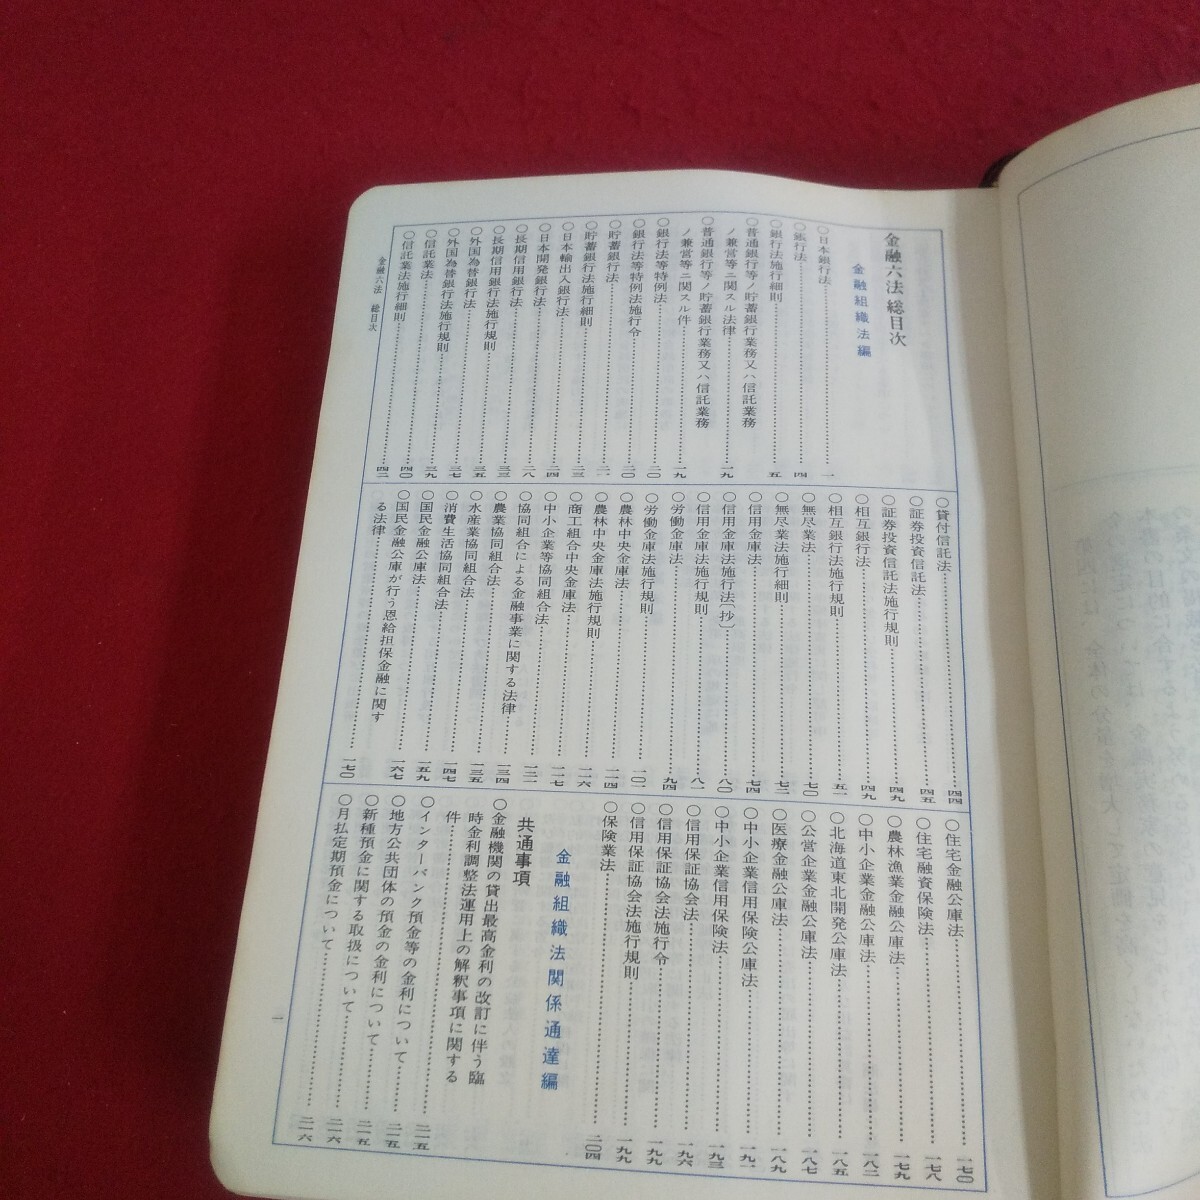 金融六法 総目次
金融組織法編
○日本銀行法……一
○銀行法……四
○銀行法施行細則……五
○普通銀行等ノ貯蓄銀行業務又ハ信託業務
ノ兼営等ニ関スル法律……一九
○普通銀行等ノ貯蓄銀行業務又ハ信託業務
ノ兼営等ニ関スル件……一九
○銀行法等特例法……二〇
○銀行法等特例法施行令……二〇
○貯蓄銀行法……二一
○貯蓄銀行法施行細則……二三
○日本輸出入銀行法……二四
○日本開発銀行法……二八
○長期信用銀行法……三三
○長期信用銀行法施行規則……三五
○外国為替銀行法……三七
○外国為替銀行法施行規則……三九
○信託業法……四〇
○信託業法施行細則……四二
○貸付信託法……四四
○証券投資信託法……四五
○証券投資信託法施行規則……四九
○相互銀行法……四九
○相互銀行法施行規則……五一
○無尽業法……七〇
○無尽業法施行細則……七二
○信用金庫法……七四
○信用金庫法施行法〔抄〕……八〇
○信用金庫法施行規則……八一
○労働金庫法……九四
○労働金庫法施行規則……一〇一
○農林中央金庫法……一一四
○農林中央金庫法施行規則……一一六
○商工組合中央金庫法……一一七
○中小企業等協同組合法……一二一
○協同組合による金融事業に関する法律……一三四
○農業協同組合法……一三五
○水産業協同組合法……一四七
○消費生活協同組合法……一五九
○国民金融公庫法……一六七
○国民金融公庫が行う恩給担保金融に関す
る法律……一七〇
○住宅金融公庫法……一七〇
○住宅融資保険法……一七八
○農林漁業金融公庫法……一七九
○中小企業金融公庫法……一八二
○北海道東北開発公庫法……一八五
○公営企業金融公庫法……一八七
○医療金融公庫法……一八九
○中小企業信用保険公庫法……一九一
○中小企業信用保険法……一九三
○信用保証協会法……一九六
○信用保証協会法施行令……一九九
○信用保証協会法施行規則……一九九
○保険業法……二〇四
金融組織法関係通達編
共通事項
○金融機関の貸出最高金利の改訂に伴う臨
時金利調整法運用上の解釈事項に関する
件……二一五
○インターバンク預金等の金利について……二一五
○地方公共団体の預金の金利について……二一五
○新種預金に関する取扱について……二一六
○月払定期預金について……二一六
金融六法 総目次
一